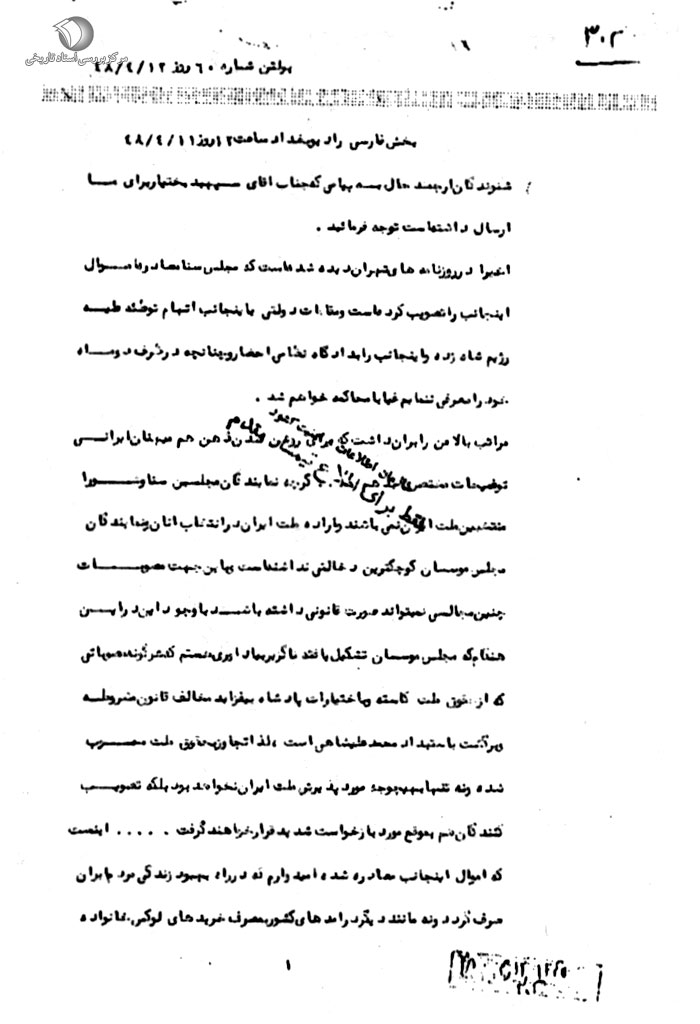 ۳۰۲
۱۶
مرکز بررسی اسناد تاریخی
بولتن شماره ۶۰ روز ۴۸/۴/۱۲
بخش فارسی رادیو بغداد ساعت ۱۲ روز ۴۸/۴/۱۱
شنوندگان ارجمند حال به پیامی که جناب اقای سپهبد بختیار برای ما
ارسال داشته است توجه فرمائید .
اخیرا در روزنامه های تهران دیده شده است که مجلس سنا مصادره اموال
اینجانب را تصویب کرده است و مقامات دولتی باینجانب اتهام توطئه علیه
رژیم شاه زده و اینجانب را بدادگاه نظامی احضار و چنانچه در ظرف دو ماه
خود را معرفی ننمایم غیابا محاکمه خواهم شد .
مراتب بالا من را بر آن داشت که برای روشن شدن ذهن هم میهنان ایرانی
توضیحات مختصری بدهم نمایندگان مجلسین سنا و شورا
منتخبین ملت ایران نمی باشند و اراده ملت ایران در انتخاب انان و نمایندگان
مجلس موسسان کوچکترین دخالتی نداشته است و باین جهت مصوبات
چنین مجالسی نمیتواند صورت قانونی داشته باشد با وجود این در این
هنگام که مجلس موسسان تشکیل یافته ناگزیر بیاد اوری هستم که هر گونه مصوباتی
که از حقوق ملت کاسته و باختیارات پادشاه بیفزاید مخالف قانون مشروطه
و برگشت باستبداد محمد علیشاهی است ، لذا تجاوز بحقوق ملت محسوب
شده و نه تنها بهیچوجه مورد پذیرش ملت ایران نخواهد بود بلکه تصویب
کنندگان هم بموقع مورد بازخواست شدید قرار خواهند گرفت ..... اینست
که اموال اینجانب مصادره شده امیدوارم که در راه بهبود زندگی مردم ایران
صرف گردد و نه مانند دیگر درامد های کشور بمصرف خرید های لوکس خانواده
۱